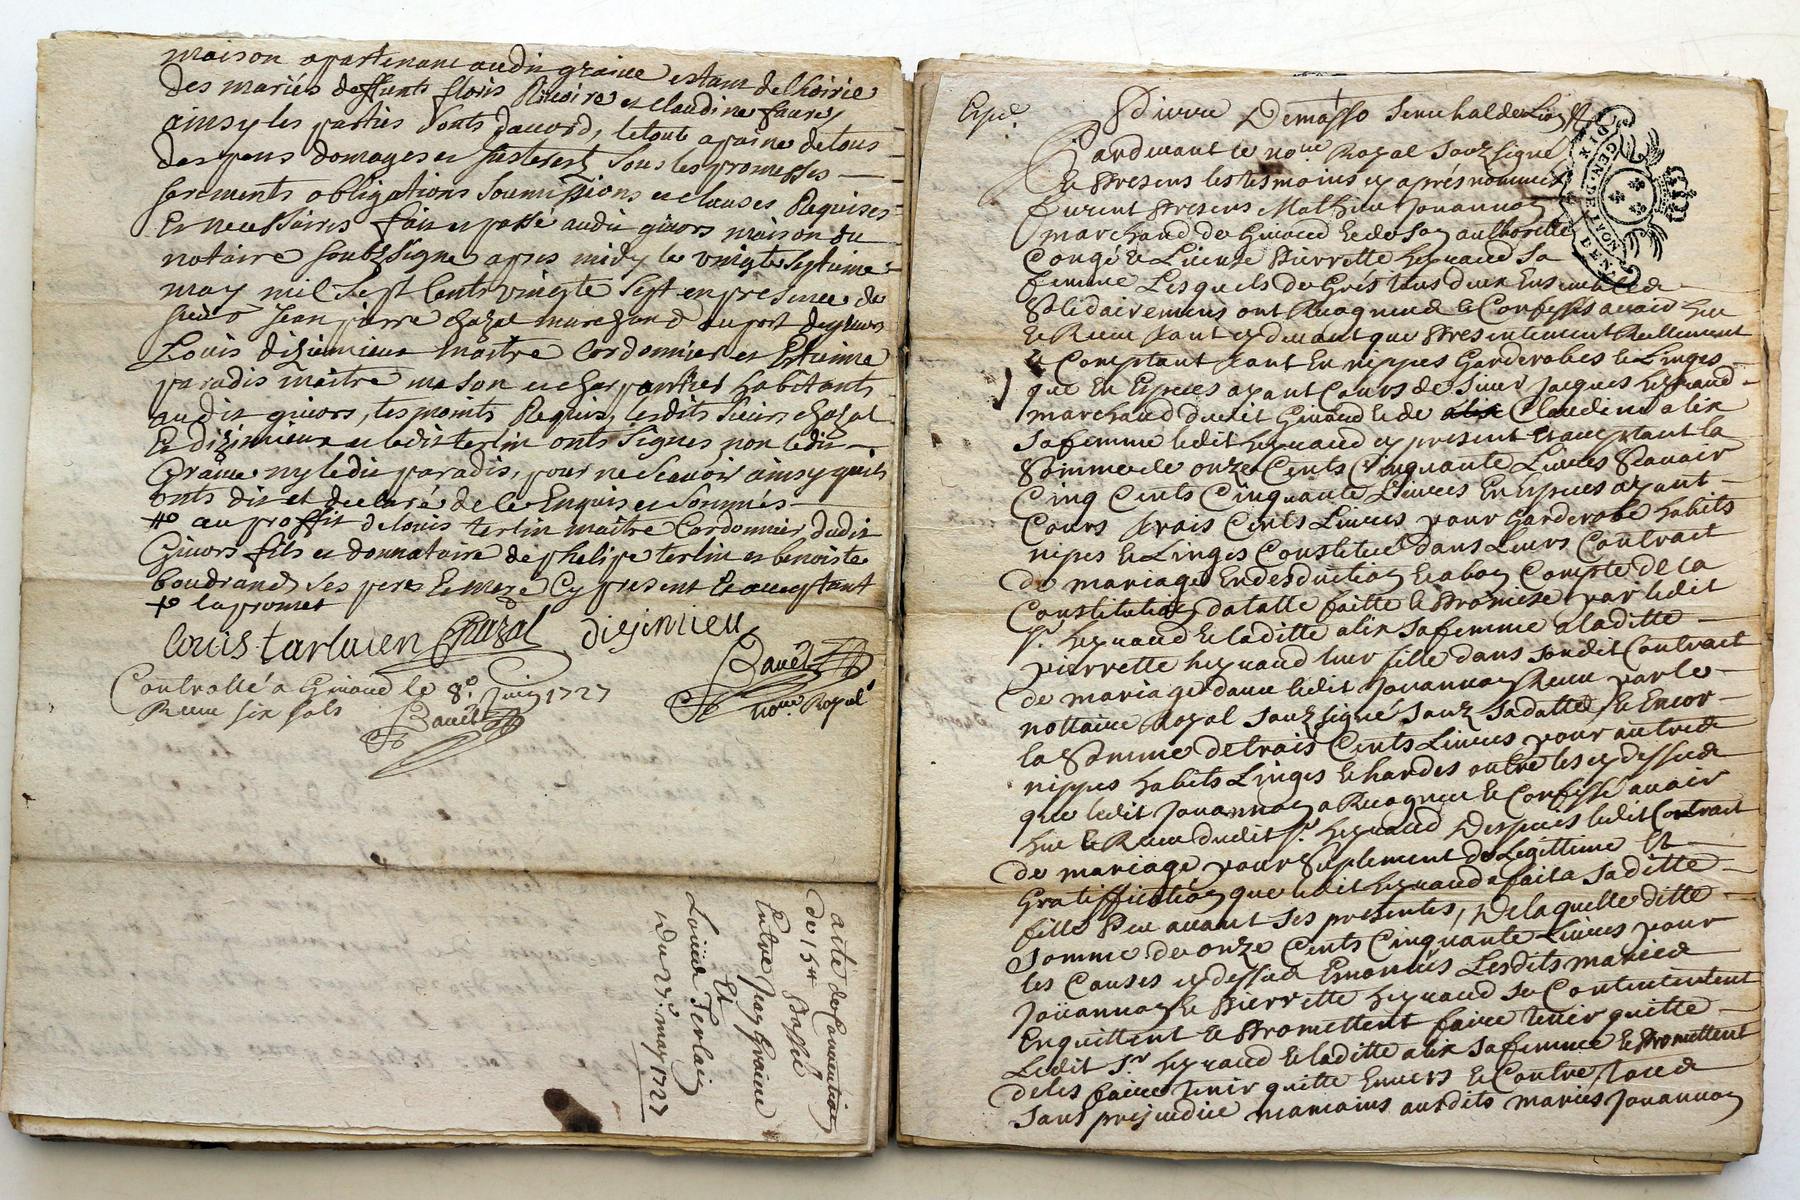 maison apartenant audit graine estant de lhoirie
des mariés deffunts floris et claudine faure,
ainsy les parties sonts dacord, le tout a paine de tous
despens domages et Interest sous les promesses
serements obligations soumissions et clauses Requises
Et necessaires fait et passé audit givors maison du
notaire soubsigné apres midy le vingt septieme
may mil sept cents vingte sept en presence de
sieur Jean pierre chazal marchand du port de givors
Louis dizimieux maitre Cordonnier et Estienne
paradis maitre masson et charpantier habitants
audit givors, tesmoints Requis, lesdits sieurs chazal
Et dizimieux et ledit terlin onts signes non ledit
Graine ny ledit paradis, pour ne scavoir ainsy quils
onts dit et declaré de ce Enquis et sommés
# au proffit de louis terlin maitre Cordonnier dudit
Givors fils et donnataire de phelipe terlin et benoiste
boudrand ses pere Et mere Cy present Et acceptant
# la promet
Louis tarlaien Chazal diziniieu
Bauët
nore. Royal
Controllé a Givord le 8e. Juin 1727
Receu six sols
Bauët
acte de Convention
du 15# passé
Entre Jean Graine
Et
Louis Terlain
du 27e. may 1727
Expe.
Pierre Demasso Senechal de Lion
Pardevant le nore Royal Souzsigné
Et Presens les tesmoins cy apres nommes
furent Presens Mathieu Jouannon
marchand de Givord Et de Son authorité
Congé & Licence Pierrette heyraud Sa
femme Lesquels de Gres tous deux Ensemble &
Solidairement ont Recogneu & Confessé avoir heu
& Receu tant cy devant que Presentement Reellement
& Comptant tant En nippes Garderobes & Linges
que En Especes ayant Cours de Sieur Jacques heyraud
marchand dudit Givord & de Claudine alix
Sa femme ledit heyraud cy present Et acceptant la
Somme de onze Cents Cinquante Livres Scavoir
Cinq Cents Cinquante Livres En Especes ayant
Cours trois Cents Livres pour Garderobe habits
nipes & Linges Constitué dans Leurs Contrait
de mariage En desduction & a bon Compte de la
Constitution datalle faitte & Promise par ledit
Sr. heyraud & laditte alix Sa femme a laditte
pierrette heyraud leur fille dans Sondit Contrait
de mariage davec ledit Jouannon Receu par le
nottaire Royal Souzsigné Souz Sa datte, & Encor
la Somme de trois Cents Livres pour autres
nippes habits Linges & hardes outre les cy dessus
que ledit Jouannon a Recogneu & Confessé avoir
heu & Receu dudit Sr. heyraud Despuis ledit Contrait
de mariage pour Suplement de Legittime Et
Gratiffication que ledit heyraud a fait a Saditte
fille Peu avant Ses presentes, De laquelle ditte
Somme de onze Cents Cinquante Livres pour
les Causes cy dessus Enoncées Lesdits maries
Joüannon & Pierrette heyraud Se Contententent
Enquittent & Promettent faire tenir quitte
Ledit Sr. heyraud & laditte alix Sa femme & Promettent
de les faire tenir quitte Envers & Contre tous
Sans prejudice neamoins ausdits maries Jouannon
GEN DE LYON